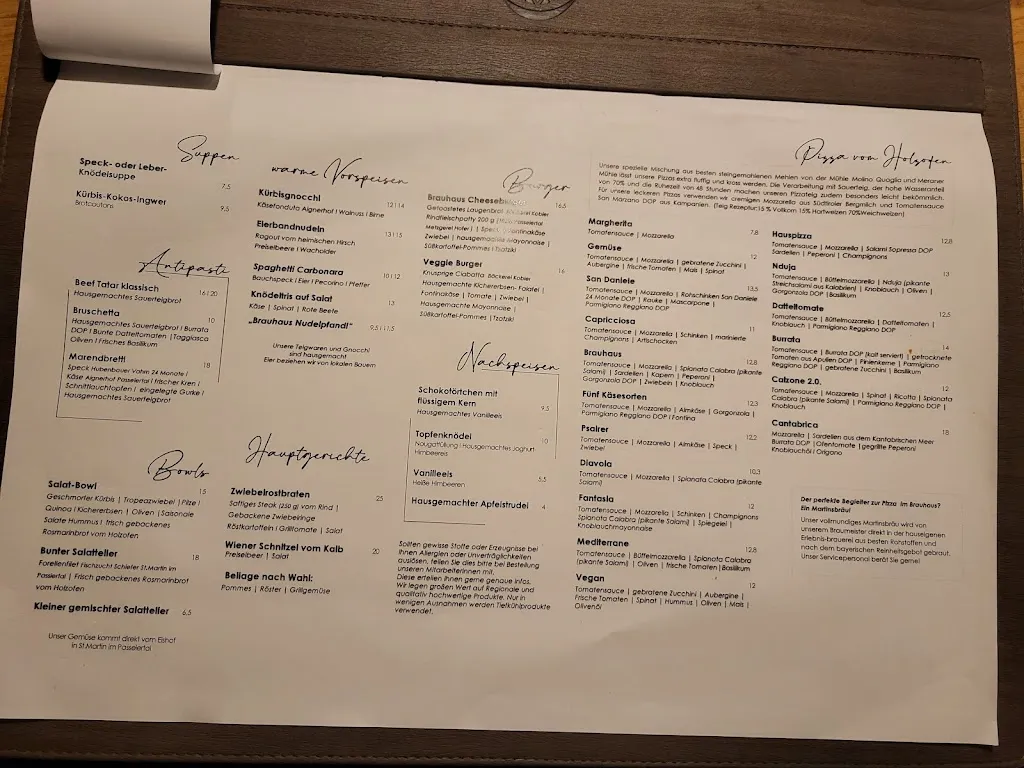 Suppen
Speck- oder Leber-
Knödelsuppe 7,5
Kürbis-Kokos-Ingwer 9,5
Brotcoutons
Antipasti
Beef Tatar klassisch 16 | 20
Hausgemachtes Sauerteigbrot
Bruschetta 10
Hausgemachtes Sauerteigbrot | Burrata
DOP | Bunte Datteltomaten | Taggiasca
Oliven | Frisches Basilikum
Marendbrettl 18
Speck Hubenbauer Vahrn 24 Monate |
Käse Aignerhof Passeiertal | frischer Kren |
Schnittlauchtopfen | eingelegte Gurke |
Hausgemachtes Sauerteigbrot
Bowls
Salat-Bowl 15
Geschmorter Kürbis | Tropeazwiebel | Pilze |
Quinoa | Kichererbsen | Oliven | Saisonale
Salate Hummus | frisch gebackenes
Rosmarinbrot vom Holzofen
Bunter Salatteller 18
Forellenfilet Fischzucht Schiefer St.Martin im
Passeiertal | Frisch gebackenes Rosmarinbrot
vom Holzofen
Kleiner gemischter Salatteller 6,5
Unser Gemüse kommt direkt vom Eishof
in St.Martin im Passeiertal
warme Vorspeisen
Kürbisgnocchi 12 | 14
Käsefonduta Aignerhof | Walnuss | Birne
Eierbandnudeln 13 | 15
Ragout vom heimischen Hirsch
Preiselbeere | Wacholder
Spaghetti Carbonara 10 | 12
Bauchspeck | Eier | Pecorino | Pfeffer
Knödeltris auf Salat 13
Käse | Spinat | Rote Beete
„Brauhaus Nudelpfandl“ 9,5 | 11,5
Unsere Teigwaren und Gnocchi
sind hausgemacht!
Eier beziehen wir von lokalen Bauern
Hauptgerichte
Zwiebelrostbraten 25
Saftiges Steak (250 g) vom Rind |
Gebackene Zwiebelringe
Röstkartoffeln | Grilltomate | Salat
Wiener Schnitzel vom Kalb 20
Preiselbeer | Salat
Beilage nach Wahl:
Pommes | Röster | Grillgemüse
Burger
Brauhaus Cheeseburger 16,5
Getoastetes Laugenbrot Bäckerei Kobler
Rindfleischpatty 200 g Passeiertal
Metzgerei Hofer | Speck | Fontinakäse
Zwiebel | hausgemachte Mayonnaise |
Süßkartoffel-Pommes | Tzatzki
Veggie Burger 16
Knusprige Ciabatta Bäckerei Kobler
Hausgemachte Kichererbsen- Falafel |
Fontinakäse | Tomate | Zwiebel |
Hausgemachte Mayonnaise |
Süßkartoffel-Pommes | Tzatzki
Nachspeisen
Schokotörtchen mit
flüssigem Kern 9,5
Hausgemachtes Vanilleeis
Topfenknödel 10
Nougatfüllung | Hausgemachtes Joghurt-
Himbeereis
Vanilleeis 5,5
Heiße Himbeeren
Hausgemachter Apfelstrudel 4
Sollten gewisse Stoffe oder Erzeugnisse bei
Ihnen Allergien oder Unverträglichkeiten
auslösen, teilen Sie dies bitte bei Bestellung
unseren Mitarbeiterinnen mit.
Diese erteilen Ihnen gerne genaue Infos.
Wir legen großen Wert auf Regionale und
qualitativ hochwertige Produkte. Nur in
wenigen Ausnahmen werden Tiefkühlprodukte
verwendet.
Pizza vom Holzofen
Unsere spezielle Mischung aus besten steingemahlenen Mehlen von der Mühle Molino Quaglia und Meraner
Mühle lässt unsere Pizzas extra fluffig und kross werden. Die Verarbeitung mit Sauerteig, der hohe Wasseranteil
von 70% und die Ruhezeit von 48 Stunden machen unseren Pizzateig zudem besonders leicht bekömmlich.
Für unsere leckeren Pizzas verwenden wir cremigen Mozzarella aus Südtiroler Bergmilch und Tomatensauce
San Marzano DOP aus Kampanien. (Teig Rezeptur:15 % Vollkorn 15% Hartweizen 70%Weichweizen)
Margherita 7,8
Tomatensauce | Mozzarella
Gemüse 12
Tomatensauce | Mozzarella | gebratene Zucchini |
Aubergine | frische Tomaten | Mais | Spinat
San Daniele 13,5
Tomatensauce | Mozzarella | Rohschinken San Daniele
24 Monate DOP | Rauke | Mascarpone |
Parmigiano Reggiano DOP
Capricciosa 11
Tomatensauce | Mozzarella | Schinken | marinierte
Champignons | Artischocken
Brauhaus 12,8
Tomatensauce | Mozzarella | Spianata Calabra (pikante
Salami) | Sardellen | Kapern | Peperoni |
Gorgonzola DOP | Zwiebeln | Knoblauch
Fünf Käsesorten 12,3
Tomatensauce | Mozzarella | Almkäse | Gorgonzola |
Parmigiano Reggiano DOP | Fontina
Psairer 12,2
Tomatensauce | Mozzarella | Almkäse | Speck |
Zwiebel
Diavola 10,3
Tomatensauce | Mozzarella | Spianata Calabra (pikante
Salami)
Fantasia 12
Tomatensauce | Mozzarella | Schinken | Champignons
Spianata Calabra (pikante Salami) | Spiegelei |
Knoblauchmayonnaise
Mediterrane 12,8
Tomatensauce | Büffelmozzarella | Spianata Calabra
(pikante Salami) | Oliven | frische Tomaten | Basilikum
Vegan 12
Tomatensauce | gebratene Zucchini | Aubergine |
Frische Tomaten | Spinat | Hummus | Oliven | Mais |
Olivenöl
Hauspizza 12,8
Tomatensauce | Mozzarella | Salami Sopressa DOP
Sardellen | Peperoni | Champignons
Nduja 13
Tomatensauce | Büffelmozzarella | Nduja (pikante
Streichsalami aus Kalabrien) | Knoblauch | Oliven |
Gorgonzola DOP | Basilikum
Datteltomate 12,5
Tomatensauce | Büffelmozzarella | Datteltomaten |
Knoblauch | Parmigiano Reggiano DOP
Burrata 14
Tomatensauce | Burrata DOP (kalt serviert) | getrocknete
Tomaten aus Apulien DOP | Pinienkerne | Parmigiano
Reggiano DOP | gebratene Zucchini | Basilikum
Calzone 2.0. 12
Tomatensauce | Mozzarella | Spinat | Ricotta | Spianata
Calabra (pikante Salami) | Parmigiano Reggiano DOP |
Knoblauch
Cantabrica 13
Mozzarella | Sardellen aus dem Kantabrischen Meer
Burrata DOP | Ofentomate | gegrillte Peperoni
Knoblauchöl | Origano
Der perfekte Begleiter zur Pizza im Brauhaus?
Ein Martinsbräu!
Unser vollmundiges Martinsbräu wird von
unserem Braumeister direkt in der hauseigenen
Erlebnis-brauerei aus besten Rohstoffen und
nach dem bayerischen Reinheitsgebot gebraut.
Unser Servicepersonal berät Sie gerne!